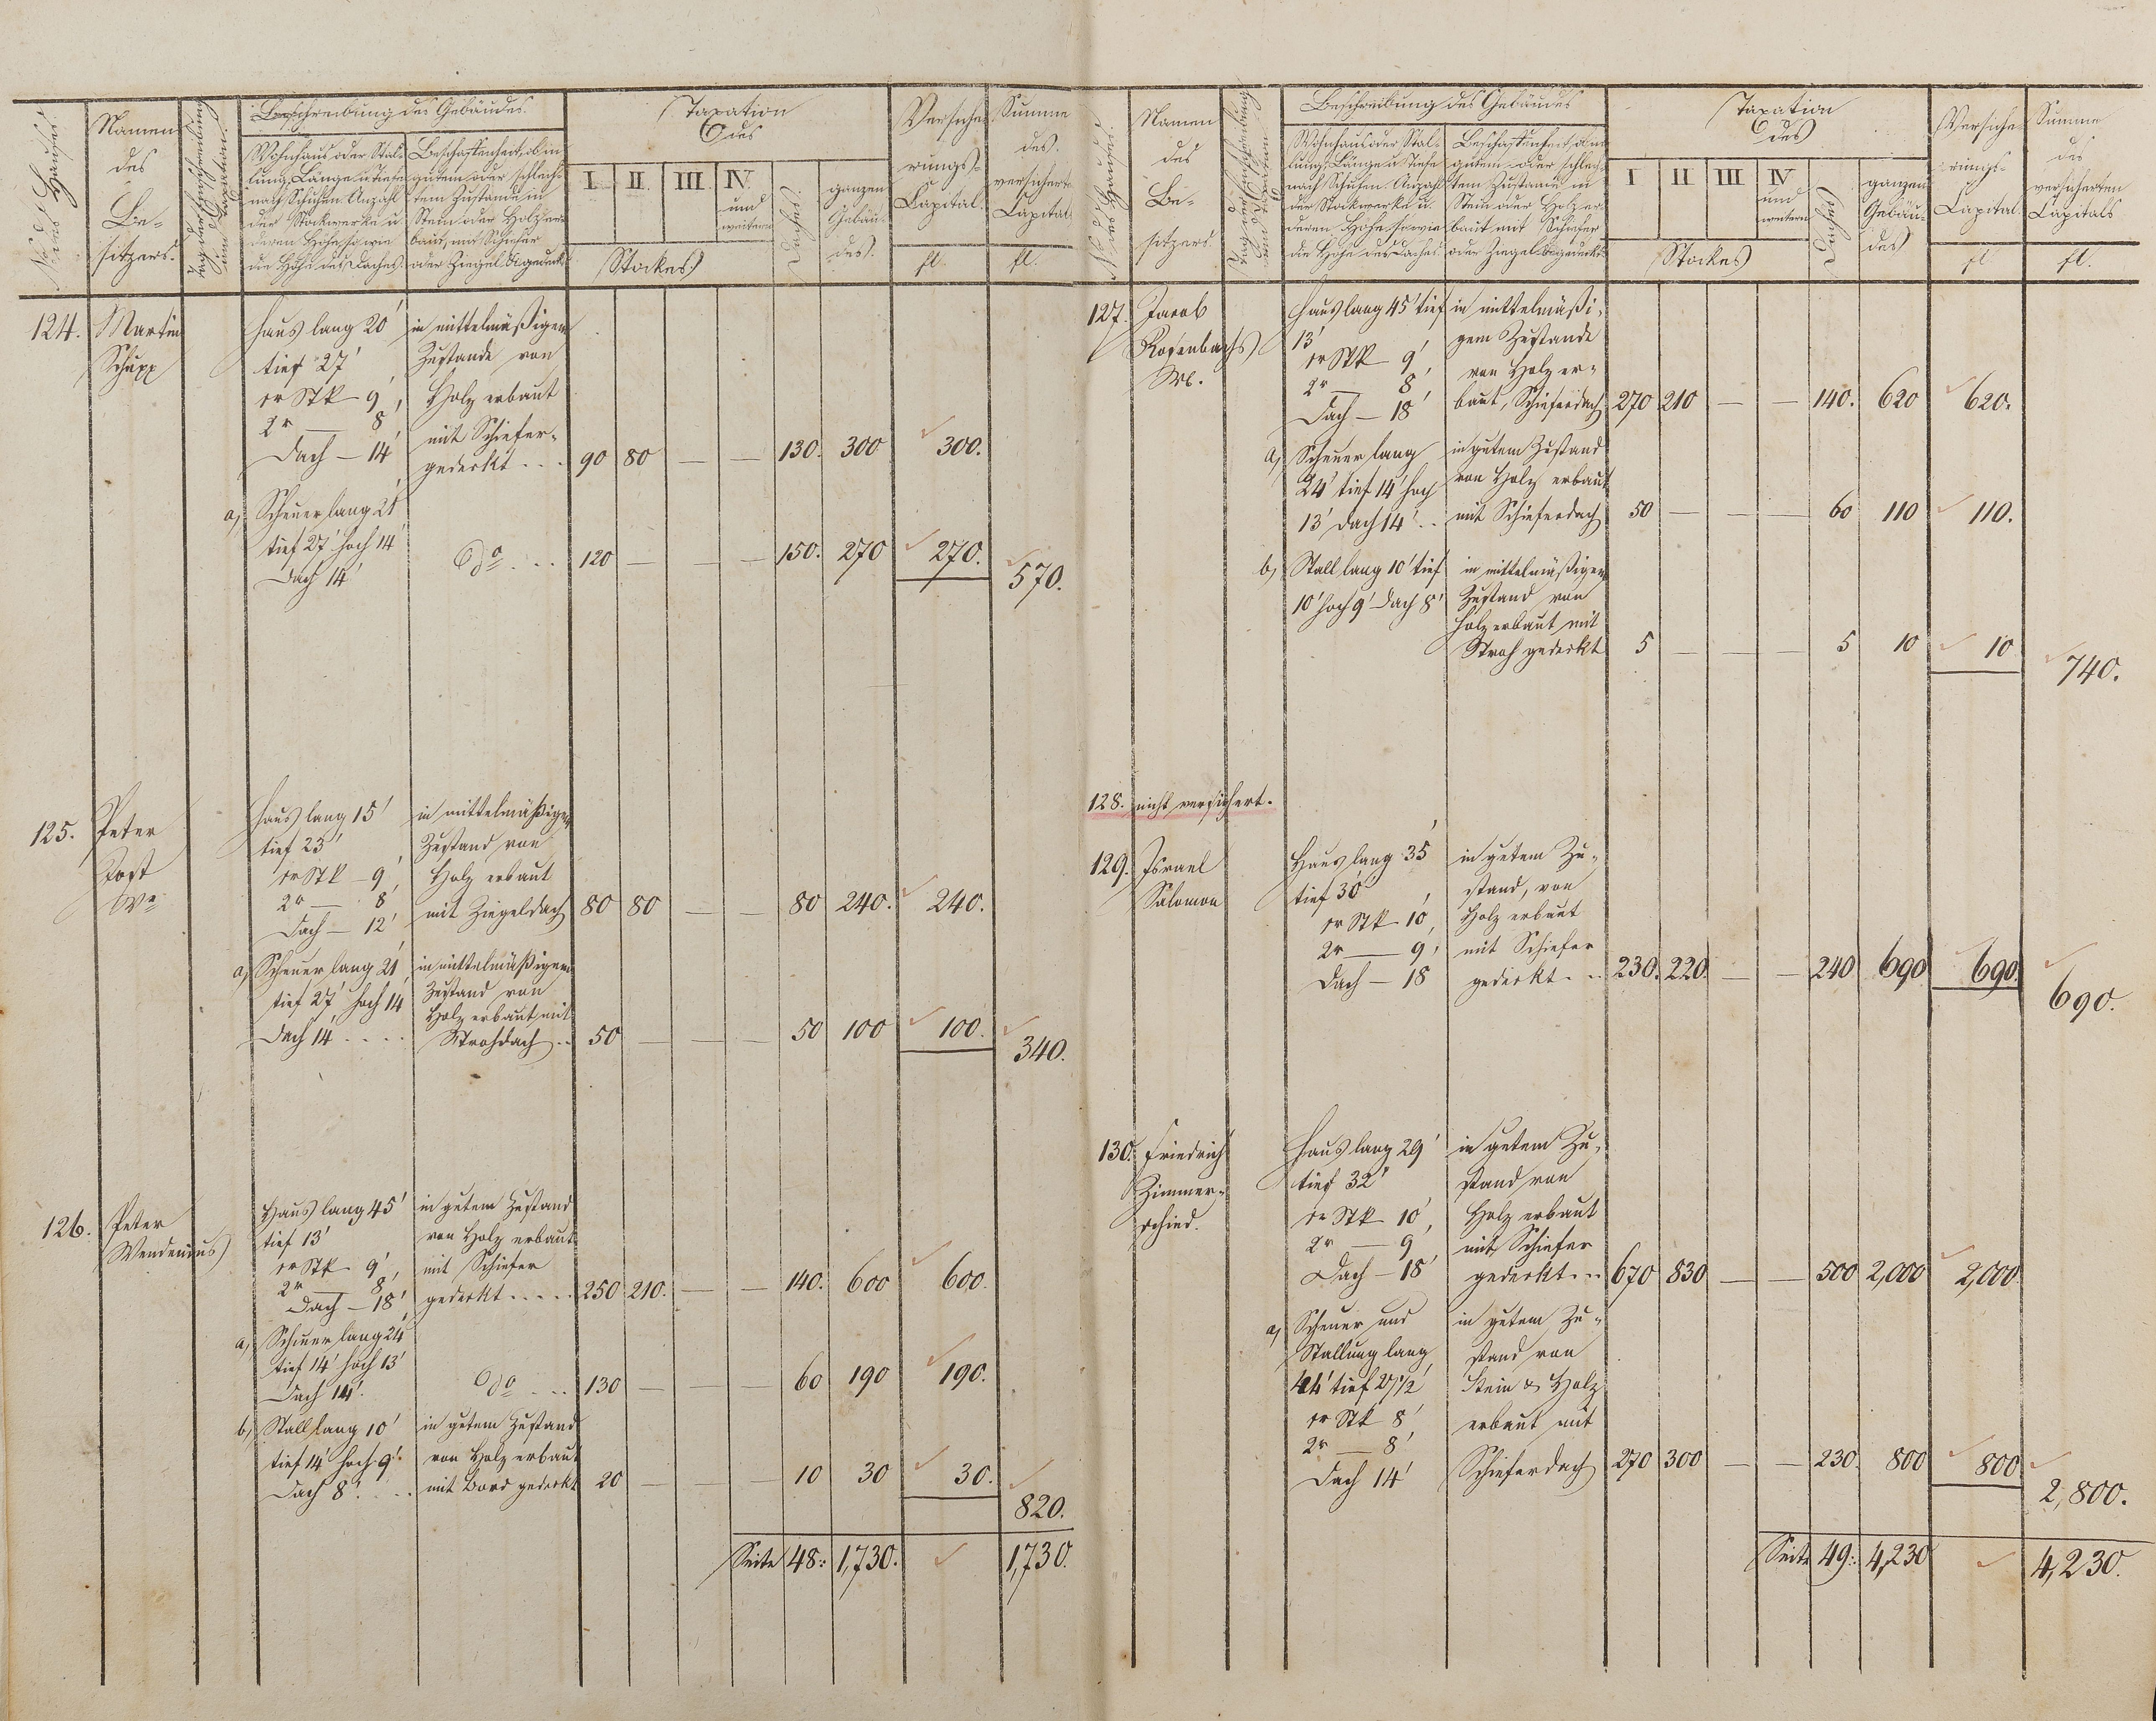 No des Hauses.
Namen
des
Be-
sitzers.
Tag der Einschreibung
und der Taxation.
Beschreibung des Gebäudes.
Wohnhaus oder Stal-
lung, Länge u. Tiefe
nach Schuhen. Anzahl
der Stockwerke u.
deren Höhe, so wie
die Höhe des Daches.
Beschaffenheit, ob in
gutem oder schlech-
tem Zustande in
Stein oder Holz er-
baut, mit Schiefer
oder Ziegel pp gedeckt.
Taxation
des
I. II. III. IV.
und
weitern
Stockes
Daches.
ganzen
Gebäu-
des.
Versiche-
rungs-
Capital.
fl.
Summe
des
versicherten
Capitals
fl.
124. Martin
Schupp
Haus lang 20'
tief 27'
1r Stk 9'
2r — 8'
Dach — 14'
in mittelmäßigem
Zustande von
Holz erbaut
mit Schiefer-
gedeckt . . . 90 80 — — 130. 300 300.
a) Scheuer lang 21'
tief 27' hoch 14'
Dach 14'
do . . . 120 — — — 150. 270 270.
570.
125. Peter
Jost
We
Haus lang 15'
tief 23'
1r Stk — 9'
2r — 8'
Dach — 12'
in mittelmäßigem
Zustand von
Holz erbaut
mit Ziegeldach 80 80 — — 80 240. 240.
a) Scheuer lang 21'
tief 27' hoch 14'
Dach 14' . . . .
in mittelmäßigem
Zustand von
Holz erbaut, mit
Strohdach . . 50 — — — 50 100 100.
340.
126. Peter
Wendenius
Haus lang 45'
tief 13'
1r Stk 9'
2r — 8'
Dach — 18'
in gutem Zustand
von Holz erbaut
mit Schiefer
gedeckt . . . . . 250 210. — — 140. 600 600.
a) Scheuer lang 24'
tief 14' hoch 13'
Dach 14'.
do . . . 130 — — — 60 190 190.
b) Stall lang 10'
tief 14' hoch 9'
Dach 8' . . .
in gutem Zustand
von Holz erbaut
mit Bord gedeckt 20 — — — 10 30 30.
820.
Seite 48: 1,730. 1,730.
No des Hauses.
Namen
des
Be-
sitzers.
Tag der Einschreibung
und der Taxation
Beschreibung des Gebäudes
Wohnhaus oder Stal-
lung, Länge u. Tiefe
nach Schuhen. Anzahl
der Stockwerke u.
deren Höhe, so wie
die Höhe des Daches.
Beschaffenheit, ob in
gutem oder schlech-
tem Zustande in
Stein oder Holz er-
baut mit Schiefer
oder Ziegel pp gedeckt.
Taxation
des
I II III IV
und
weitern
Stockes
Daches
ganzen
Gebäu-
des
Versiche-
rungs-
Capital.
fl
Summe
des
versicherten
Capitals
fl.
127. Jacob
Rosenbachs
We.
Haus lang 45' tief
13'
1r Stk 9'
2r — 8'
Dach — 18'
in mittelmäßi-
gem Zustande
von Holz er-
baut, Schieferdach 270 210 — — 140. 620 620.
a) Scheuer lang
24' tief 14' hoch
13' Dach 14' . .
in gutem Zustand
von Holz erbaut
mit Schieferdach 50 — — — 60 110 110.
b) Stall lang 10' tief
10' hoch 9' Dach 8'
in mittelmäßigem
Zustand von
Holz erbaut mit
Stroh gedeckt 5 — — — 5 10 10
740.
128. nicht versichert.
129. Israel
Salomon
Haus lang 35'
tief 30'
1r Stk 10'
2r — 9'
Dach — 18
in gutem Zu-
stand, von
Holz erbaut
mit Schiefer
gedeckt . . 230. 220. — — 240 690 690.
690.
130. Friedrich
Zimmer-
schied.
Haus lang 29'
tief 32'
1r Stk 10'
2r — 9'
Dach — 18'
in gutem Zu-
stand von
Holz erbaut
mit Schiefer
gedeckt . . . 670 830 — — 500 2,000 2,000.
a) Scheuer und
Stallung lang
44' tief 27 1/2'
1r Stk 8'
2r — 8'
Dach 14'
in gutem Zu-
stand von
Stein & Holz
erbaut mit
Schieferdach 270 300 — — 230. 800 800
2,800.
Seite 49: 4,230 4,230.